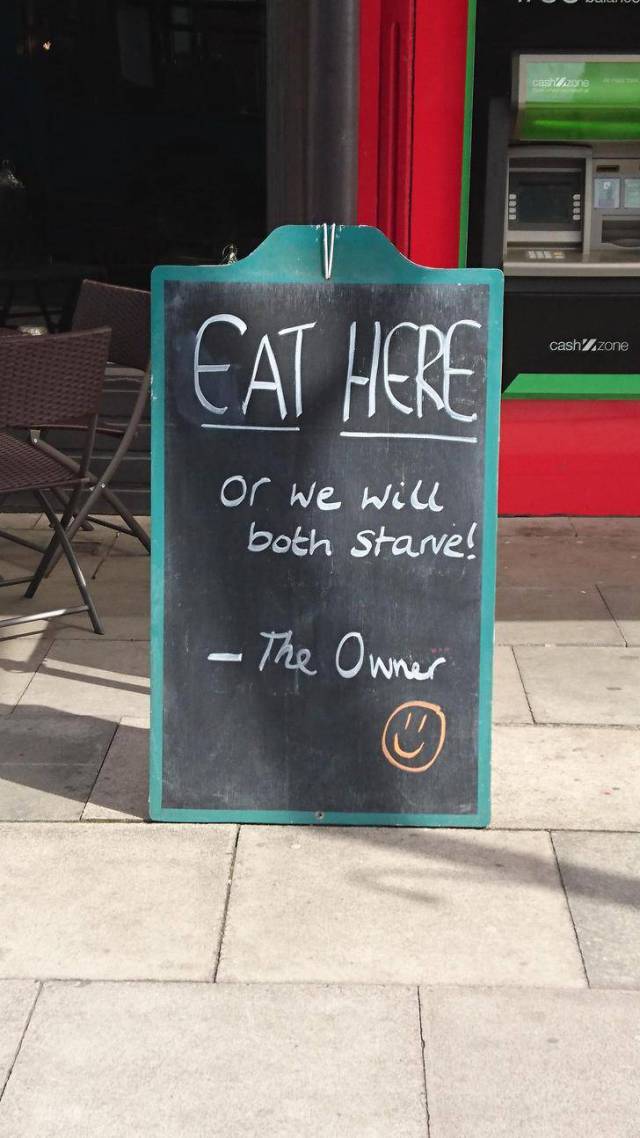 cash zone
cash zone
EAT HERE
Or we will
both starve!
- The Owner